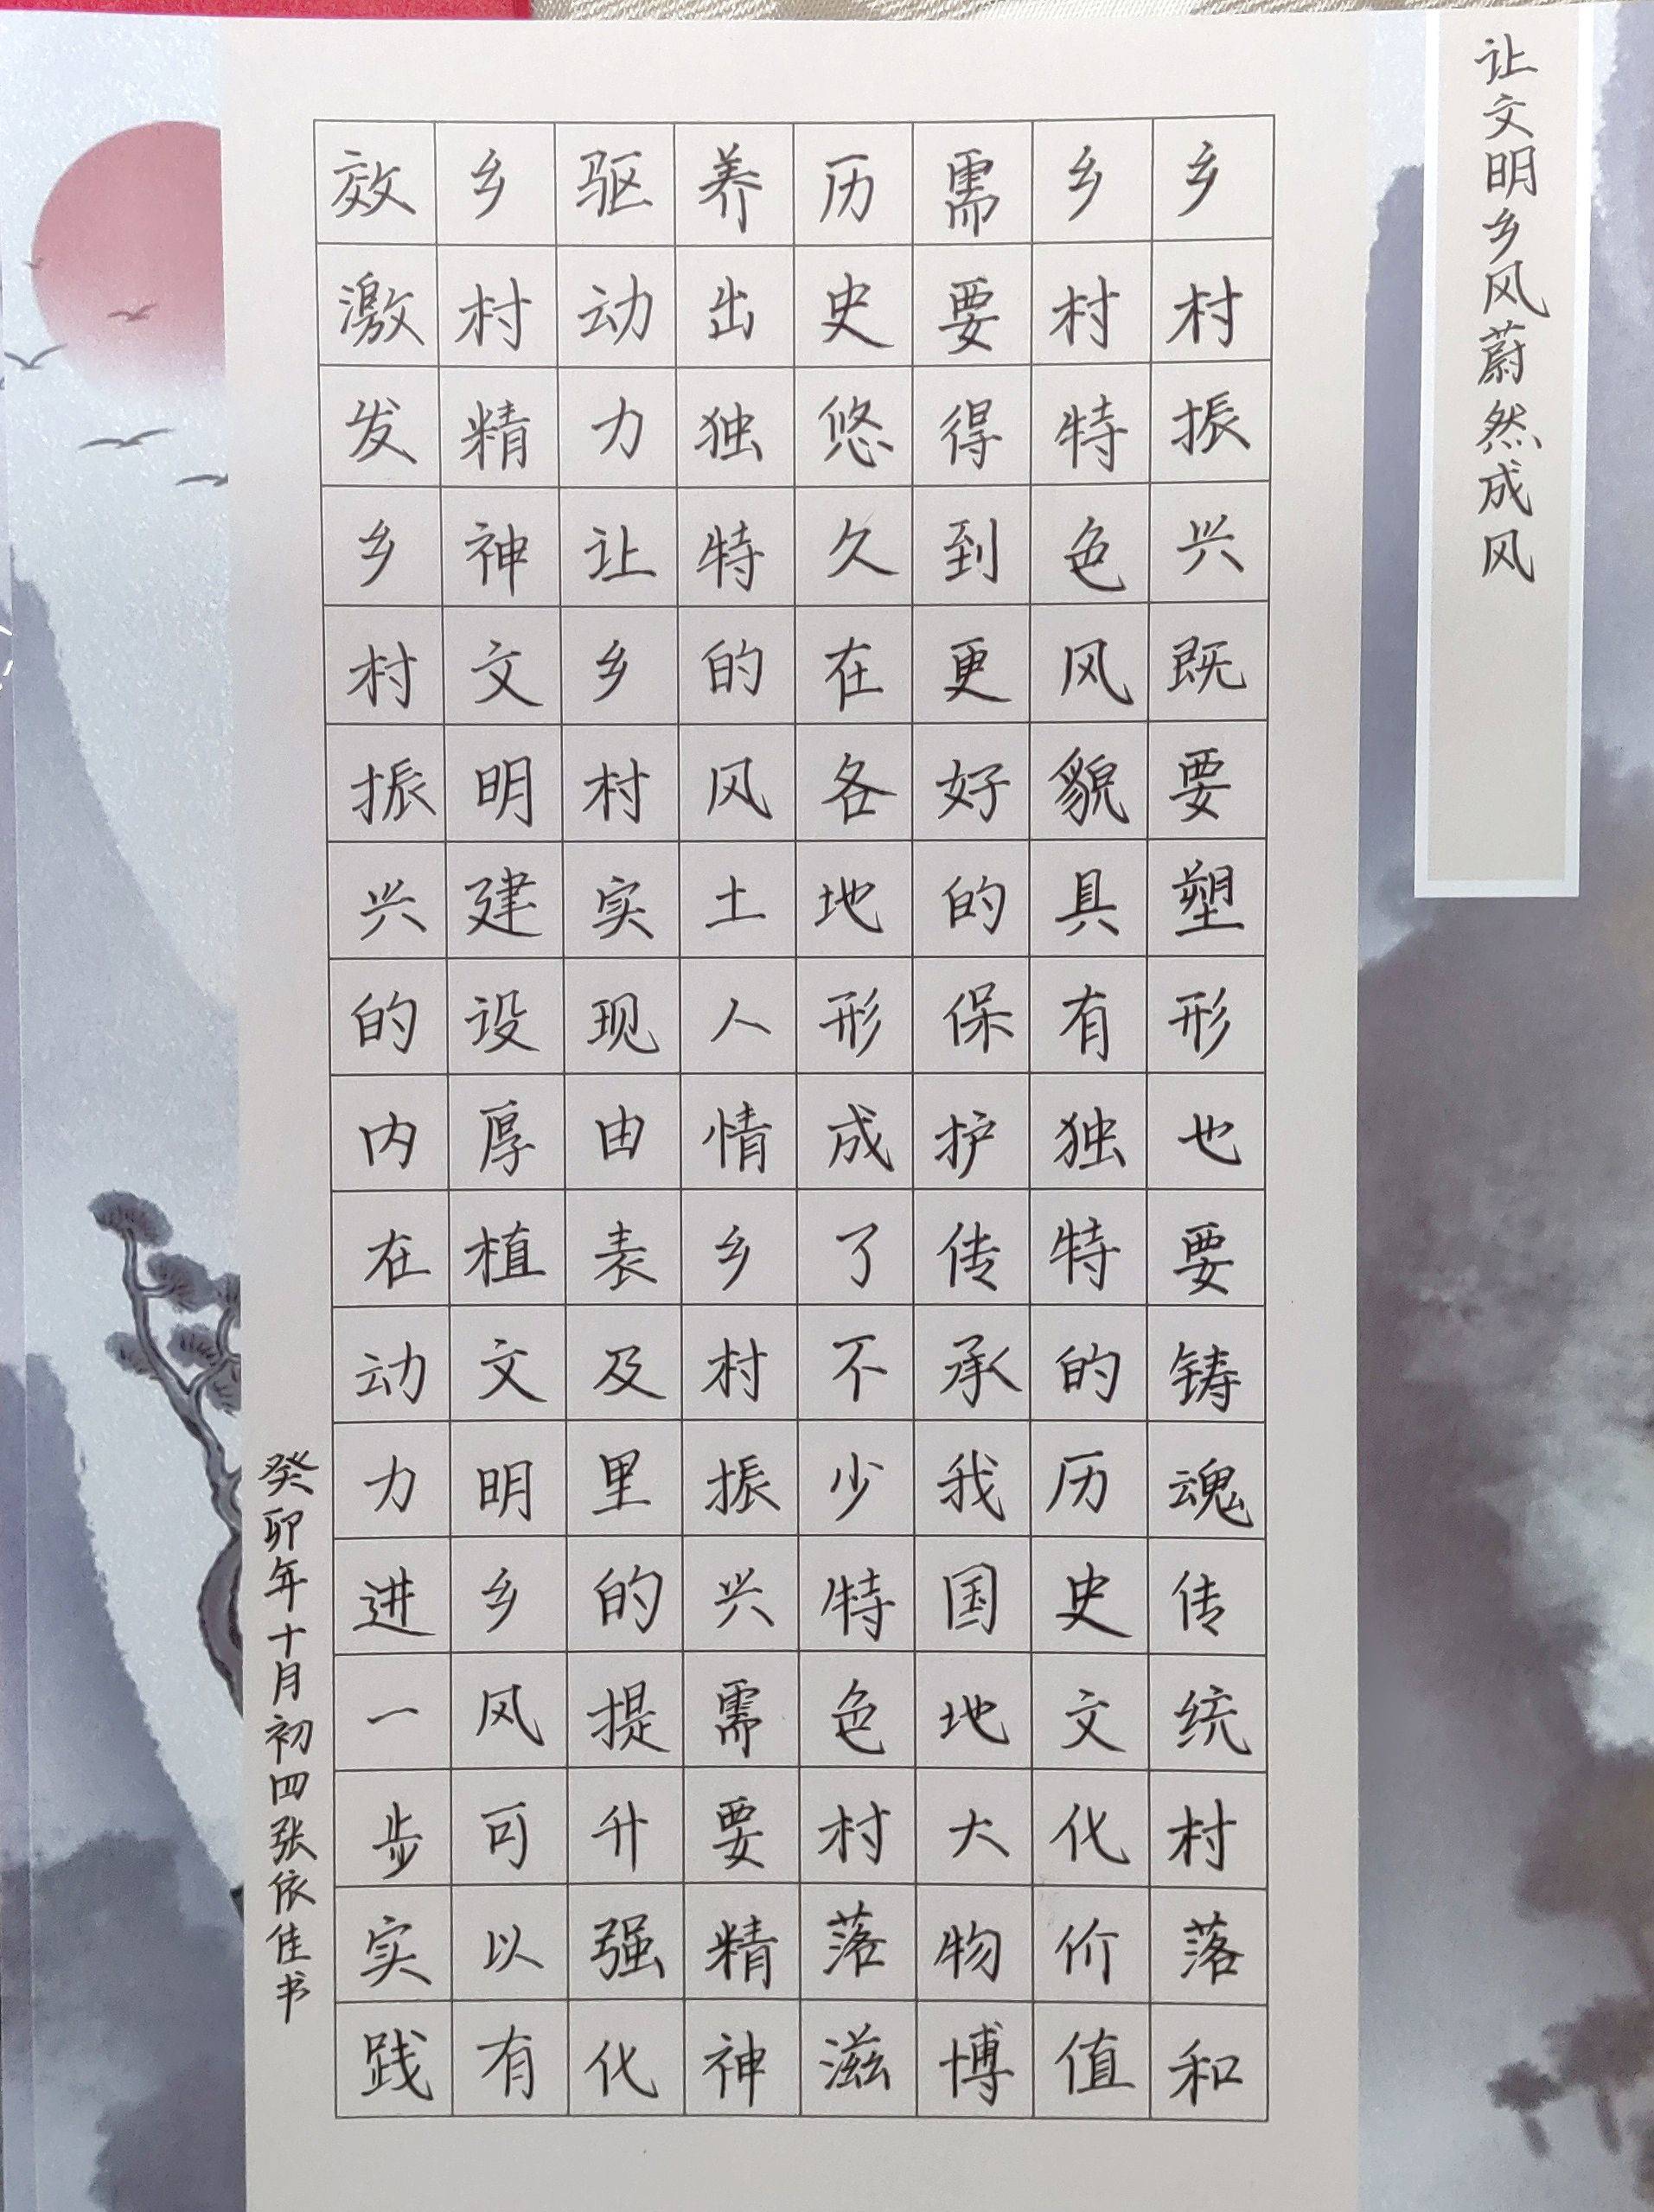 让文明乡风蔚然成风
乡村振兴既要塑形也要铸魂传统村落和
乡村特色风貌具有独特的历史文化价值
需要得到更好的保护传承我国地大物博
历史悠久在各地形成了不少特色村落滋
养出独特的风土人情乡村振兴需要精神
驱动力让乡村实现由表及里的提升强化
乡村精神文明建设厚植文明乡风可以有
效激发乡村振兴的内在动力进一步实践
癸卯年十月初四张依佳书